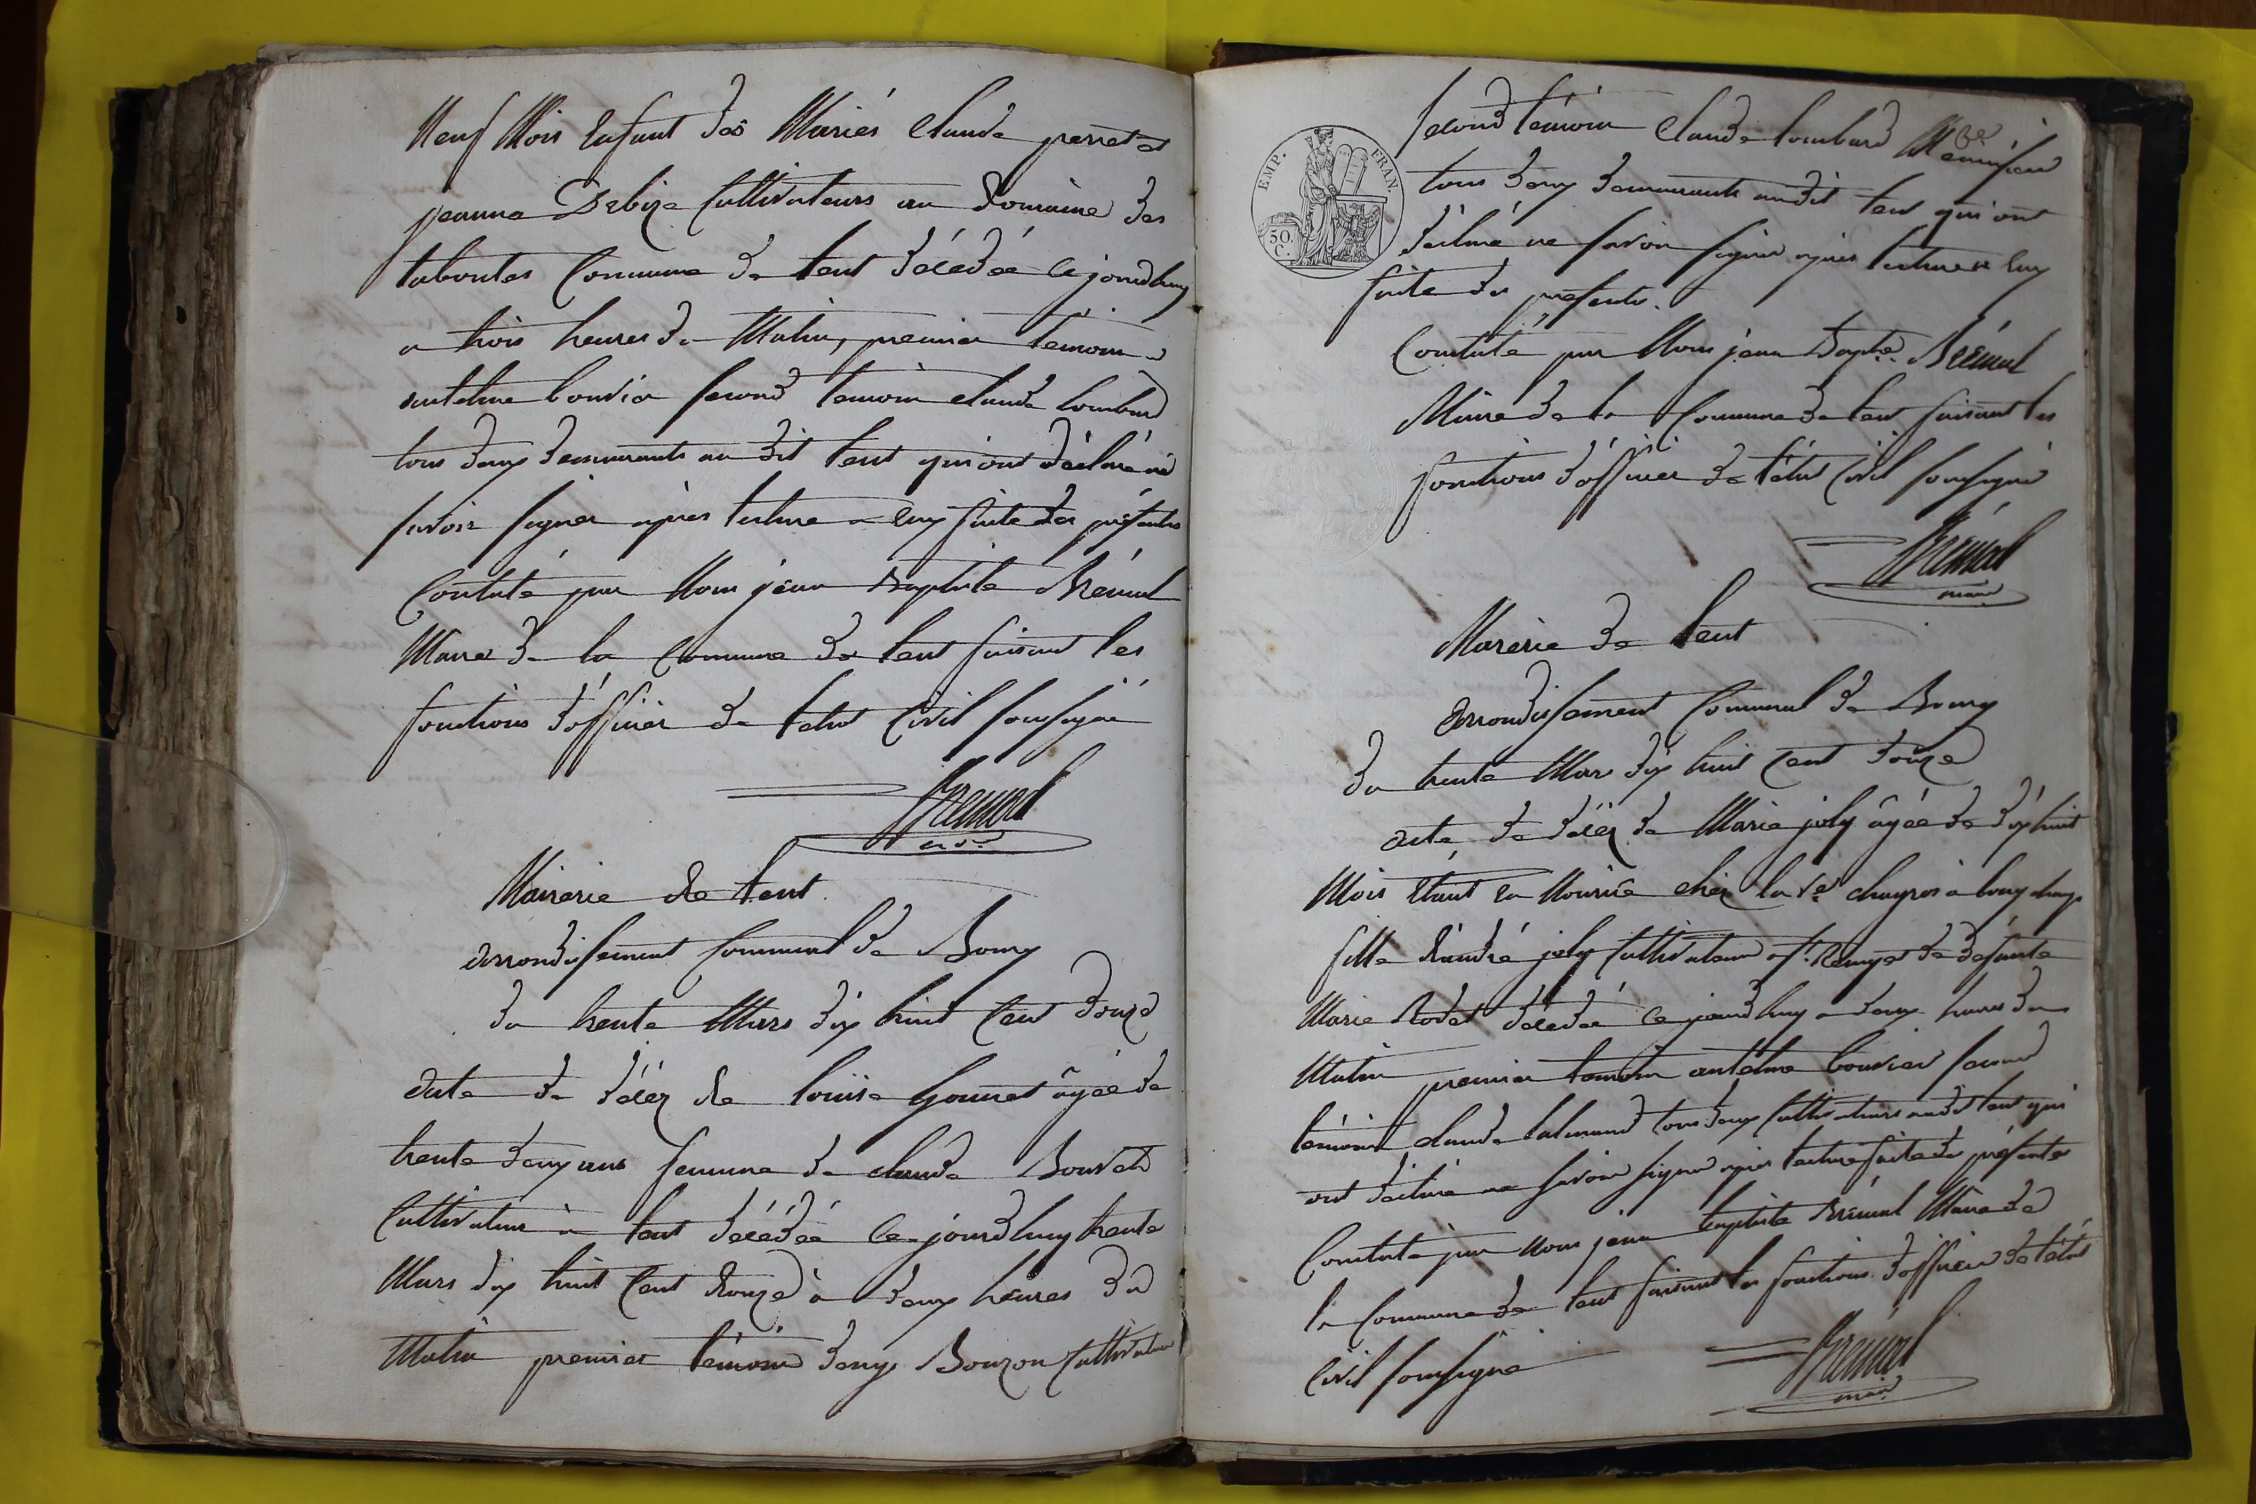 Neuf Mois Enfant des Mariés Claude perret et
jeanne Debize Cultivateurs au domaine des
taboutes Commune de Lent décédée ce jourdhuy
a trois heures du Matin, premier témoin
antelme bouvier second temoin claude Lombard
tous deux demeurants au dit Lent qui ont déclaré ne
savoir signer après lecture a eux faite des présentes
Contaté par Nous jean Baptiste Brémal
Maire de la Commune de Lent faisant les
fonctions d'officier de l'etat Civil soussigné
Bremal
Mairerie de Lent
arrondissement Communal de Bourg
du trente Mars dix huit Cent douze
acte de décèz de louise Gonnet âgée de
trente deux ans femme de claude Bouvet
Cultivateur à Lent décédée ce jourdhuy trente
Mars dix huit Cent douze à deux heures du
Matin premier témoin denys Bouzon Cultivateur
EMP. FRAN.
50. C.
second témoin Claude Lombard
tous deux demeurants audit Lent qui ont
déclaré ne savoir signer après lecture a eux
faite des présentes.
Contaté par Nous jean Bapte. Brémal
Maire de la Commune de Lent faisant les
fonctions d'officier de l'état Civil soussigné
Bremal
maire
Mairerie de Lent
arrondissement Communal de Bourg
du trente Mars dix huit Cent douze
acte de décèz de Marie joly âgée de dix huit
Mois Etant en Nourice chéz la Ve. à longchamp
fille d'andré joly Cultivateur a St. Remy et de défunte
Marie Rodet décédée ce jourdhuy a deux heures du
Matin premier temoin antelme bouvier second
témoin claude tous deux Cultivateurs audit Lent qui
ont déclaré ne savoir signer après lecture faite des présentes
Contaté par Nous jean baptiste Brémal Maire de
la Commune de Lent faisant les fonctions d'officier de l'état
Civil soussigné
Brémal
maire